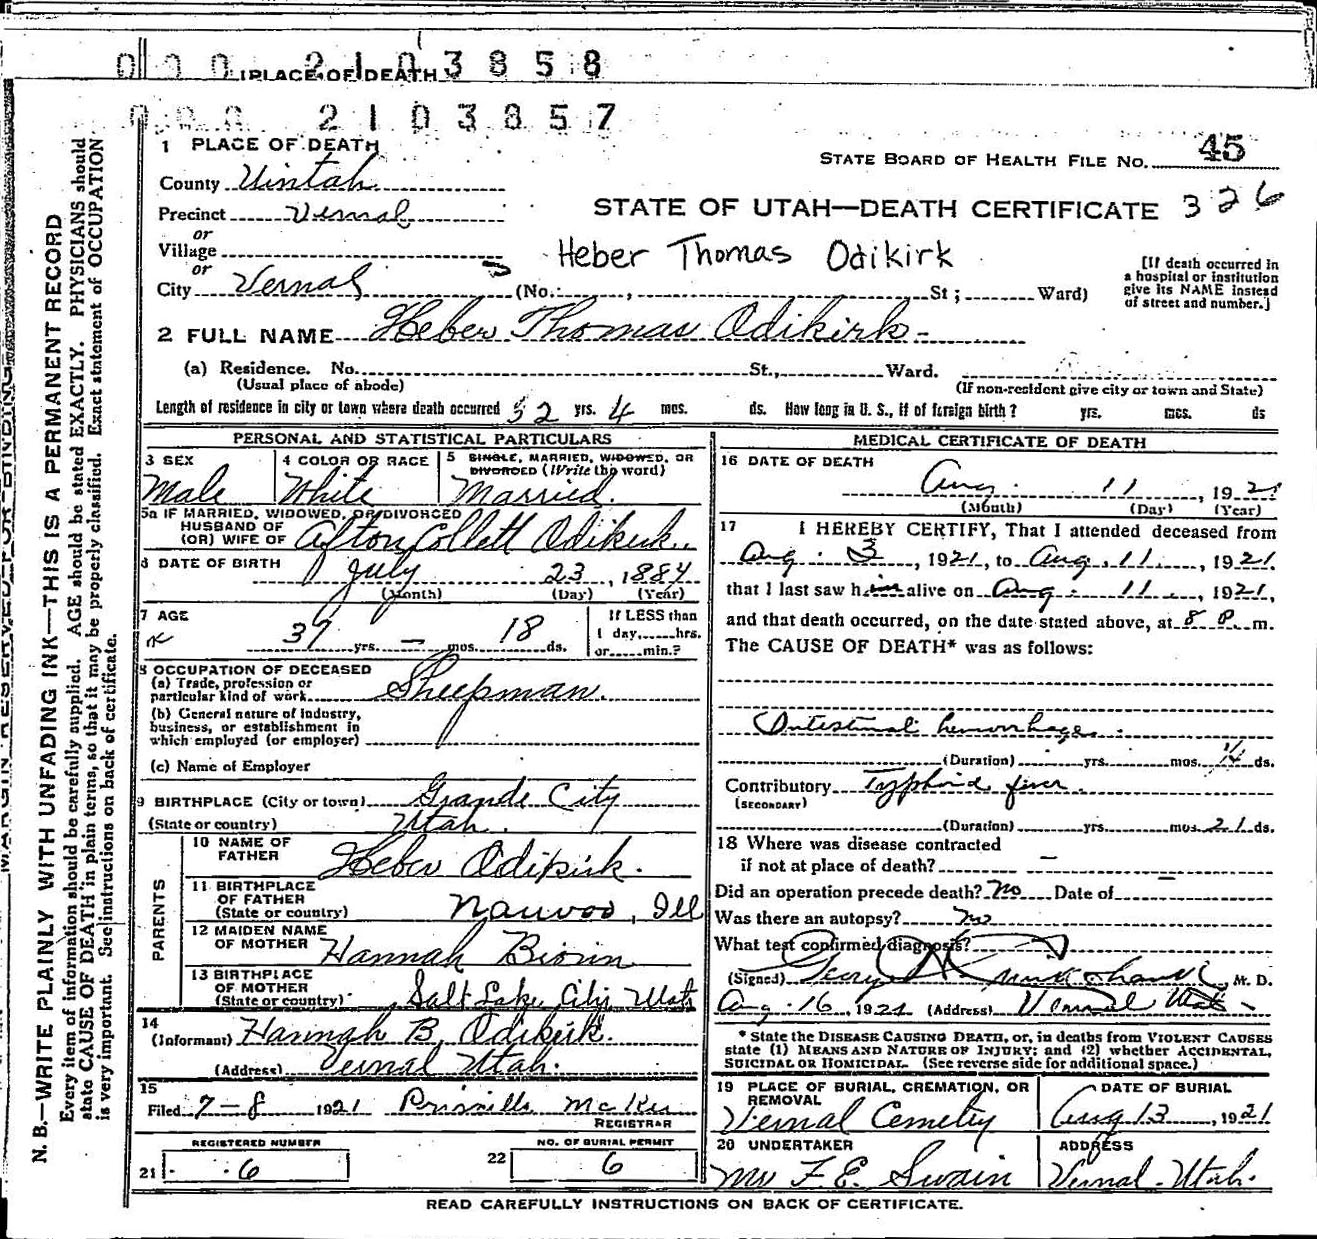 000 2103858
PLACE OF DEATH
000 2103857
1 PLACE OF DEATH
STATE BOARD OF HEALTH FILE NO. 45
County Uintah
Precinct Vernal
STATE OF UTAH—DEATH CERTIFICATE 326
or
Village
Heber Thomas Odikirk
or
City Vernal (No. , St ; Ward)
[If death occurred in
a hospital or institution
give its NAME instead
of street and number.]
2 FULL NAME Heber Thomas Odikirk
(a) Residence. No. St., Ward.
(Usual place of abode) (If non-resident give city or town and State)
Length of residence in city or town where death occurred 32 yrs. 4 mos. ds. How long in U. S., if of foreign birth? yrs. mos. ds
PERSONAL AND STATISTICAL PARTICULARS
3 SEX Male
4 COLOR OR RACE White
5 SINGLE, MARRIED, WIDOWED, OR
DIVORCED (Write the word)
Married.
5a IF MARRIED, WIDOWED, OR DIVORCED
HUSBAND OF
(OR) WIFE OF Afton Collett Odikirk
6 DATE OF BIRTH July 23, 1884
(Month) (Day) (Year)
7 AGE
37 yrs. — mos. 18 ds.
If LESS than
1 day, hrs.
or min.?
8 OCCUPATION OF DECEASED
(a) Trade, profession or
particular kind of work Sheepman.
(b) General nature of industry,
business, or establishment in
which employed (or employer)
(c) Name of Employer
9 BIRTHPLACE (City or town) Grande City
(State or country) Utah.
PARENTS
10 NAME OF
FATHER Heber Odikirk.
11 BIRTHPLACE
OF FATHER
(State or country) Nauvoo, Ill
12 MAIDEN NAME
OF MOTHER Hannah
13 BIRTHPLACE
OF MOTHER
(State or country) Salt Lake City Utah
14
(Informant) Hannah B. Odikirk.
(Address) Vernal Utah.
15
Filed 7-8 1921 Priscilla McKee
REGISTRAR
REGISTERED NUMBER
21 6
NO. OF BURIAL PERMIT
22 6
MEDICAL CERTIFICATE OF DEATH
16 DATE OF DEATH
Aug. 11, 1921
(Month) (Day) (Year)
17 I HEREBY CERTIFY, That I attended deceased from
Aug. 3, 1921, to Aug. 11, 1921
that I last saw him alive on Aug. 11, 1921,
and that death occurred, on the date stated above, at 8 P. m.
The CAUSE OF DEATH* was as follows:
Intestinal hemorrhage.
(Duration) yrs. mos. ds.
Contributory Typhoid fever.
(SECONDARY)
(Duration) yrs. mos. 21 ds.
18 Where was disease contracted
if not at place of death? —
Did an operation precede death? No Date of —
Was there an autopsy? No
What test confirmed diagnosis?
(Signed) M. D.
Aug. 16, 1921 (Address) Vernal Utah
* State the DISEASE CAUSING DEATH, or, in deaths from VIOLENT CAUSES
state (1) MEANS AND NATURE OF INJURY; and (2) whether ACCIDENTAL,
SUICIDAL OR HOMICIDAL. (See reverse side for additional space.)
19 PLACE OF BURIAL, CREMATION, OR
REMOVAL
Vernal Cemetry
DATE OF BURIAL
Aug 13, 1921
20 UNDERTAKER
F. E. Swain
ADDRESS
Vernal Utah.
READ CAREFULLY INSTRUCTIONS ON BACK OF CERTIFICATE.
MARGIN RESERVED FOR BINDING
N. B.—WRITE PLAINLY WITH UNFADING INK—THIS IS A PERMANENT RECORD
Every item of information should be carefully supplied. AGE should be stated EXACTLY. PHYSICIANS should
state CAUSE OF DEATH in plain terms, so that it may be properly classified. Exact statement of OCCUPATION
is very important. See instructions on back of certificate.